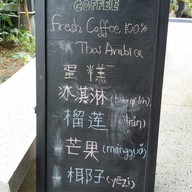 COFFEE
Fresh Coffee 100%
Thai Arabica
蛋糕
冰淇淋
榴莲
芒果 (mángguǒ)
椰子 (yēzi)